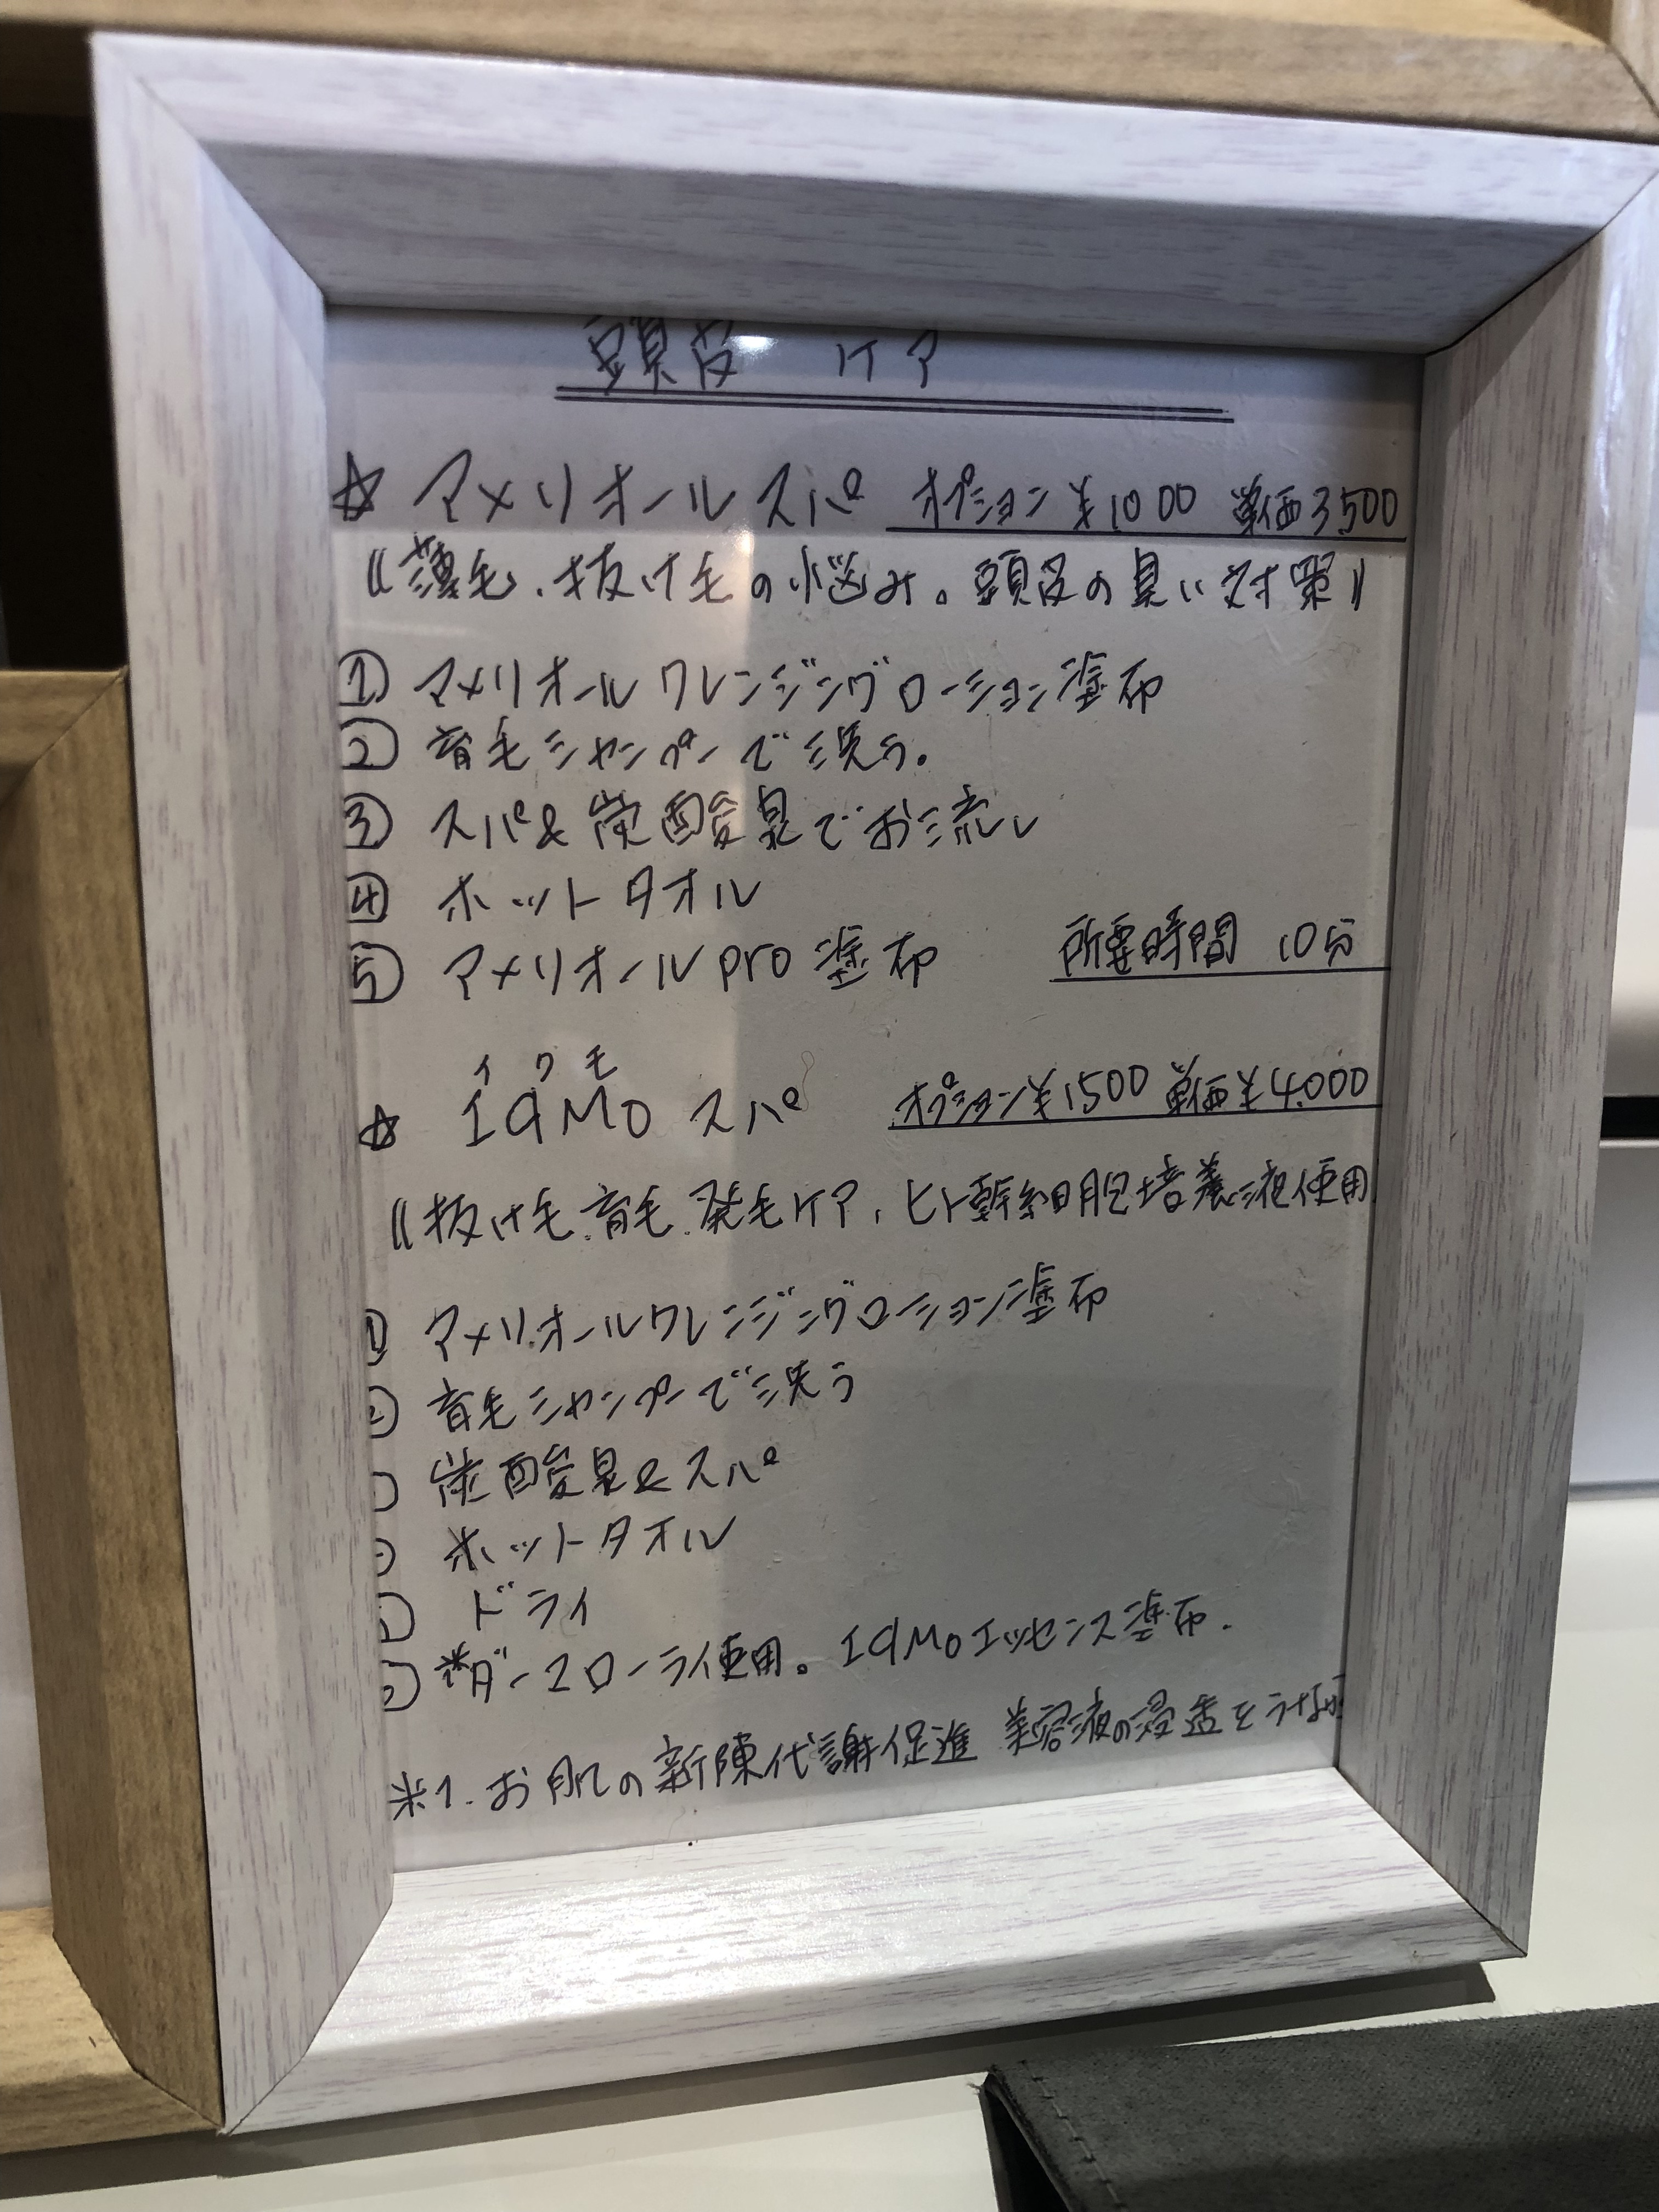 頭皮 ケア
☆ アメリオールスパ オプション¥1000 単価3500
《薄毛、抜け毛の悩み。頭皮の臭い対策》
① アメリオールクレンジングローション塗布
② 育毛シャンプーで洗う。
③ スパ&炭酸泉でお流し
④ ホットタオル
⑤ アメリオールpro塗布 所要時間 10分
イクモ
☆ IQMO スパ オプション¥1500 単価¥4.000
《抜け毛.育毛.発毛ケア、ヒト幹細胞培養液使用
① アメリオールクレンジングローション塗布
② 育毛シャンプーで洗う
炭酸泉&スパ
ホットタオル
ドライ
※ダーマローラー使用。IQMOエッセンス塗布.
※1.お肌の新陳代謝促進 美容液の浸透を